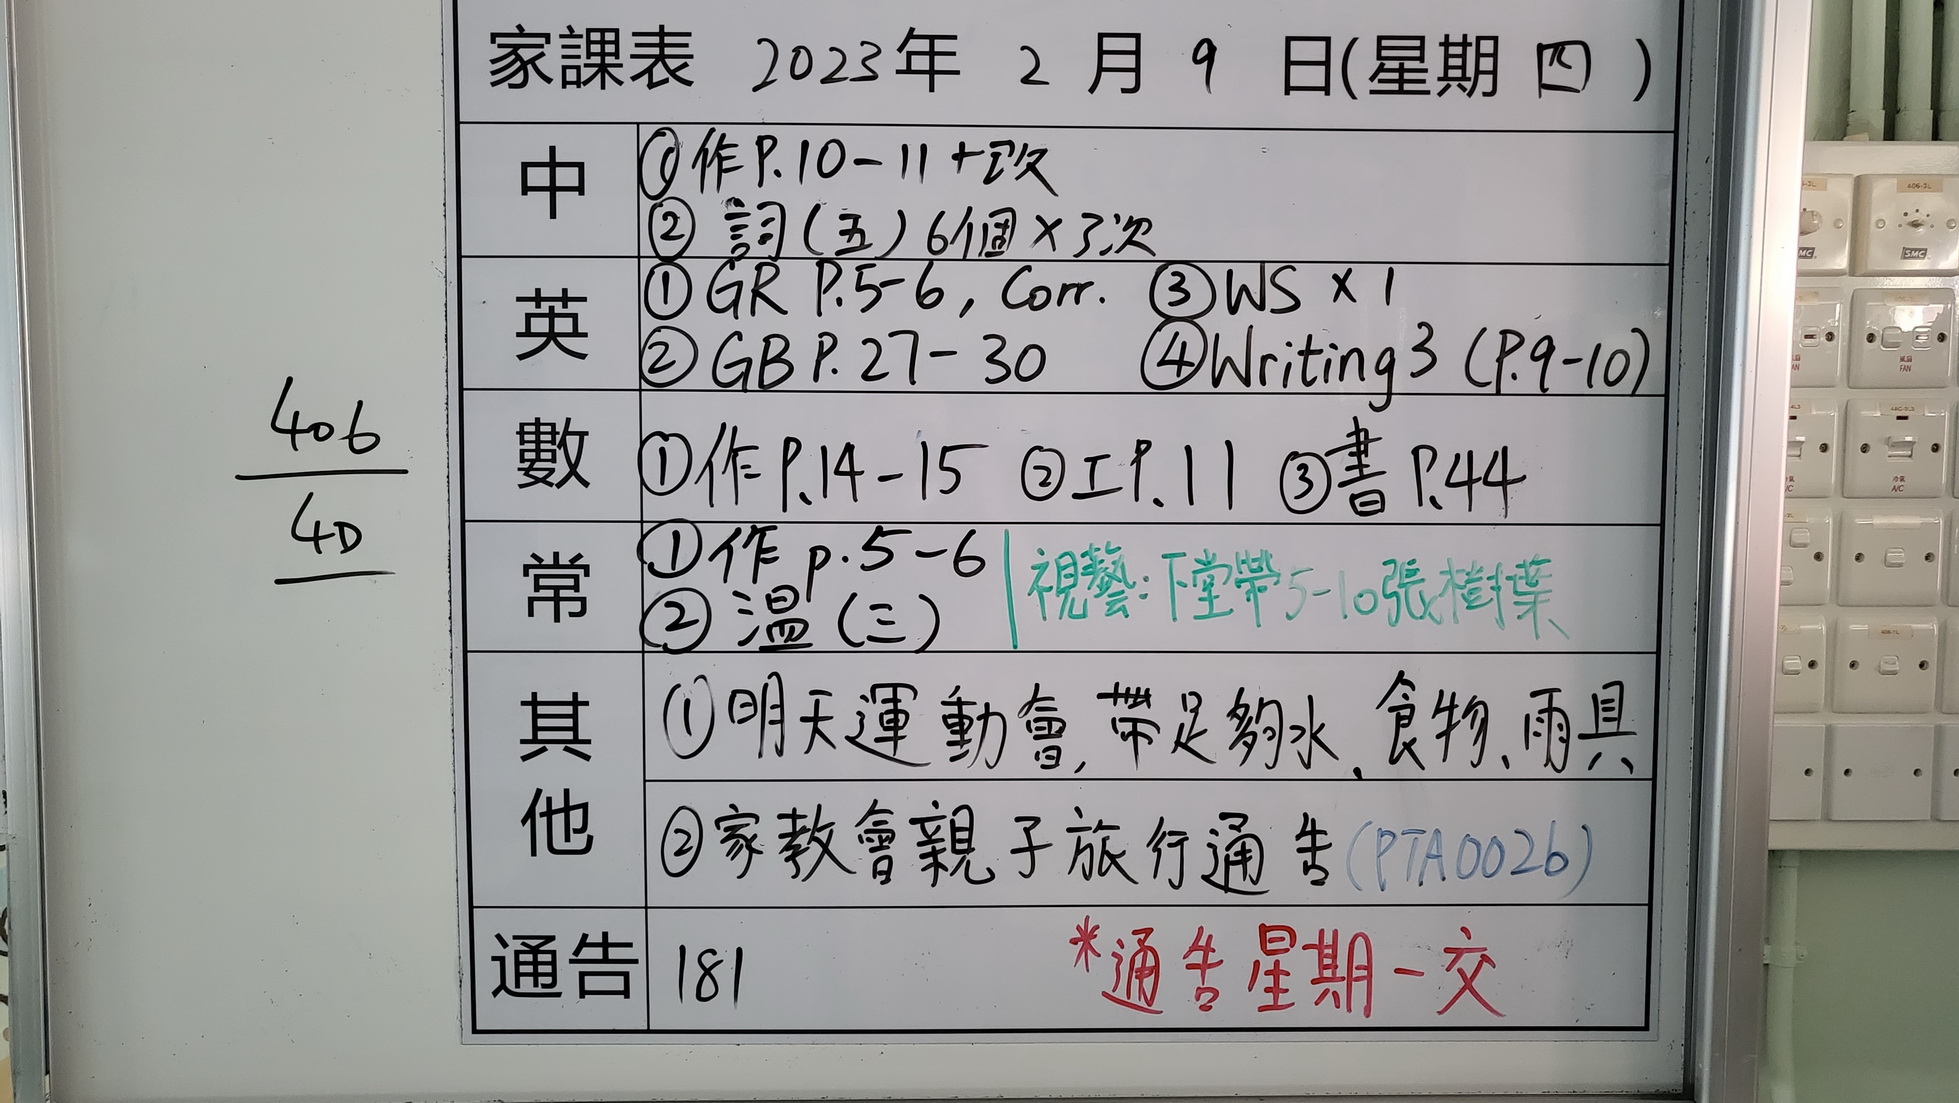 家課表 2023年 2 月 9 日(星期 四 )
中
① 作P.10-11+改
② 詞(五) 6個×3次
英
① GR P.5-6, Corr. ③ WS × 1
② GB P.27-30 ④ Writing 3 (P.9-10)
406
4D
數
① 作P.14-15 ② 工P.11 ③ 書P.44
常
① 作 p.5-6
② 溫(三)
視藝:下堂帶5-10張樹葉
其他
① 明天運動會,帶足夠水、食物、雨具
② 家教會親子旅行通告(PTA002b)
通告
181 *通告星期一交
SMC
SMC
406-3L
風扇
FAN
冷氣
A/C
406-1L